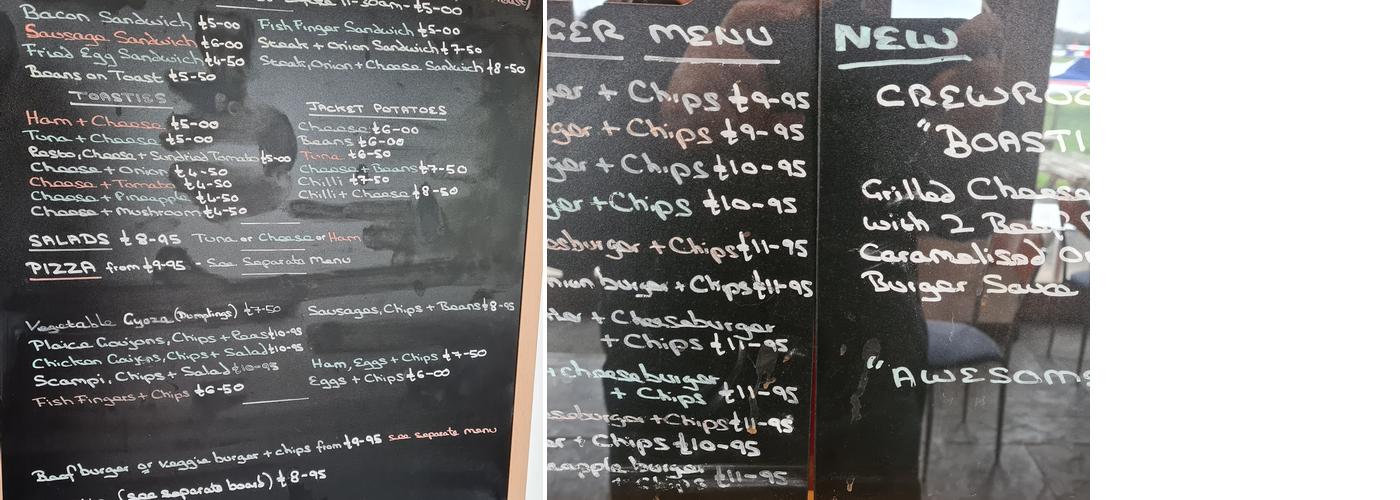 11-30am - £5-00
Bacon Sandwich £5-00
Sausage Sandwich £6-00
Fried Egg Sandwich £4-50
Beans on Toast £5-50
Fish Finger Sandwich £5-00
Steak + Onion Sandwich £7-50
Steak, Onion + Cheese Sandwich £8-50
TOASTIES
Ham + Cheese £5-00
Tuna + Cheese £5-00
Pesto, Cheese + Sundried Tomato £5-00
Cheese + Onion £4-50
Cheese + Tomato £4-50
Cheese + Pineapple £4-50
Cheese + Mushroom £4-50
JACKET POTATOES
Cheese £6-00
Beans £6-00
Tuna £6-50
Cheese + Beans £7-50
Chilli £7-50
Chilli + Cheese £8-50
SALADS £8-95 Tuna or Cheese or Ham
PIZZA from £9-95 - See Separate Menu
Vegetable Gyoza (Dumplings) £7-50
Plaice Goujons, Chips + Peas £10-95
Chicken Goujons, Chips + Salad £10-95
Scampi, Chips + Salad £10-95
Fish Fingers + Chips £6-50
Sausages, Chips + Beans £8-95
Ham, Eggs + Chips £7-50
Eggs + Chips £6-00
Beef burger or veggie burger + chips from £9-95 see separate menu
(see separate board) £8-95
GER MENU
ger + Chips £9-95
ger + Chips £9-95
ger + Chips £10-95
ger + Chips £10-95
esburger + Chips £11-95
burger + Chips £11-95
+ Cheeseburger
+ Chips £11-95
+ cheeseburger
+ Chips £11-95
eseburger + Chips £11-95
er + Chips £10-95
eapple burger
+ Chips £11-95
NEW
CREWROO
"BOASTI
Grilled Cheese
with 2 Beef
Caramelised O
Burger Sauce
"AWESOME